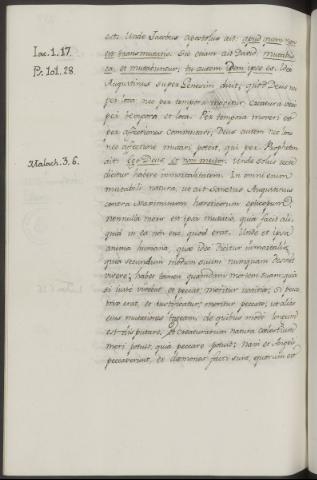 est. Unde Jacobus apostolus ait: apud quem non
Iac. 1. 17.
est transmutatio. Sic etiam ait David mutabis
Ps. 101. 28.
ea, et mutabuntur; tu autem idem ipse es. Ideo
Augustinus super Genesim dicit, quod Deus nec
per loca nec per tempora movetur, creatura vero
per tempora et loca. Per tempora moveri est
per affectiones commutari; Deus autem nec loco
nec affectione mutari potest, qui per Prophetam
Malach. 3. 6.
ait: Ego Deus, et non mutor. Unde solus recte
dicitur habere immortalitatem. In omni enim
mutabili natura, ut ait Sanctus Augustinus
contra Maximinum
nonnulla mors est ipsa mutatio, quia facit aliquid
in ea non esse, quod erat. Unde et ipsa
anima humana, quae ideo dicitur immortalis,
quia secundum modum suum nunquam desinit
vivere; habet tamen quandam mortem suam: quia
si iuste vivebat et peccat, moritur iustitiae; si peccatrix
erat, et iustificatur; moritur peccato; ut alias
eius mutationes taceam, de quibus modo longum
est disputare. Et creaturarum natura caelestium
mori potuit, quia peccare potuit; nam et Angeli
peccaverunt, et daemones facti sunt, quorum est